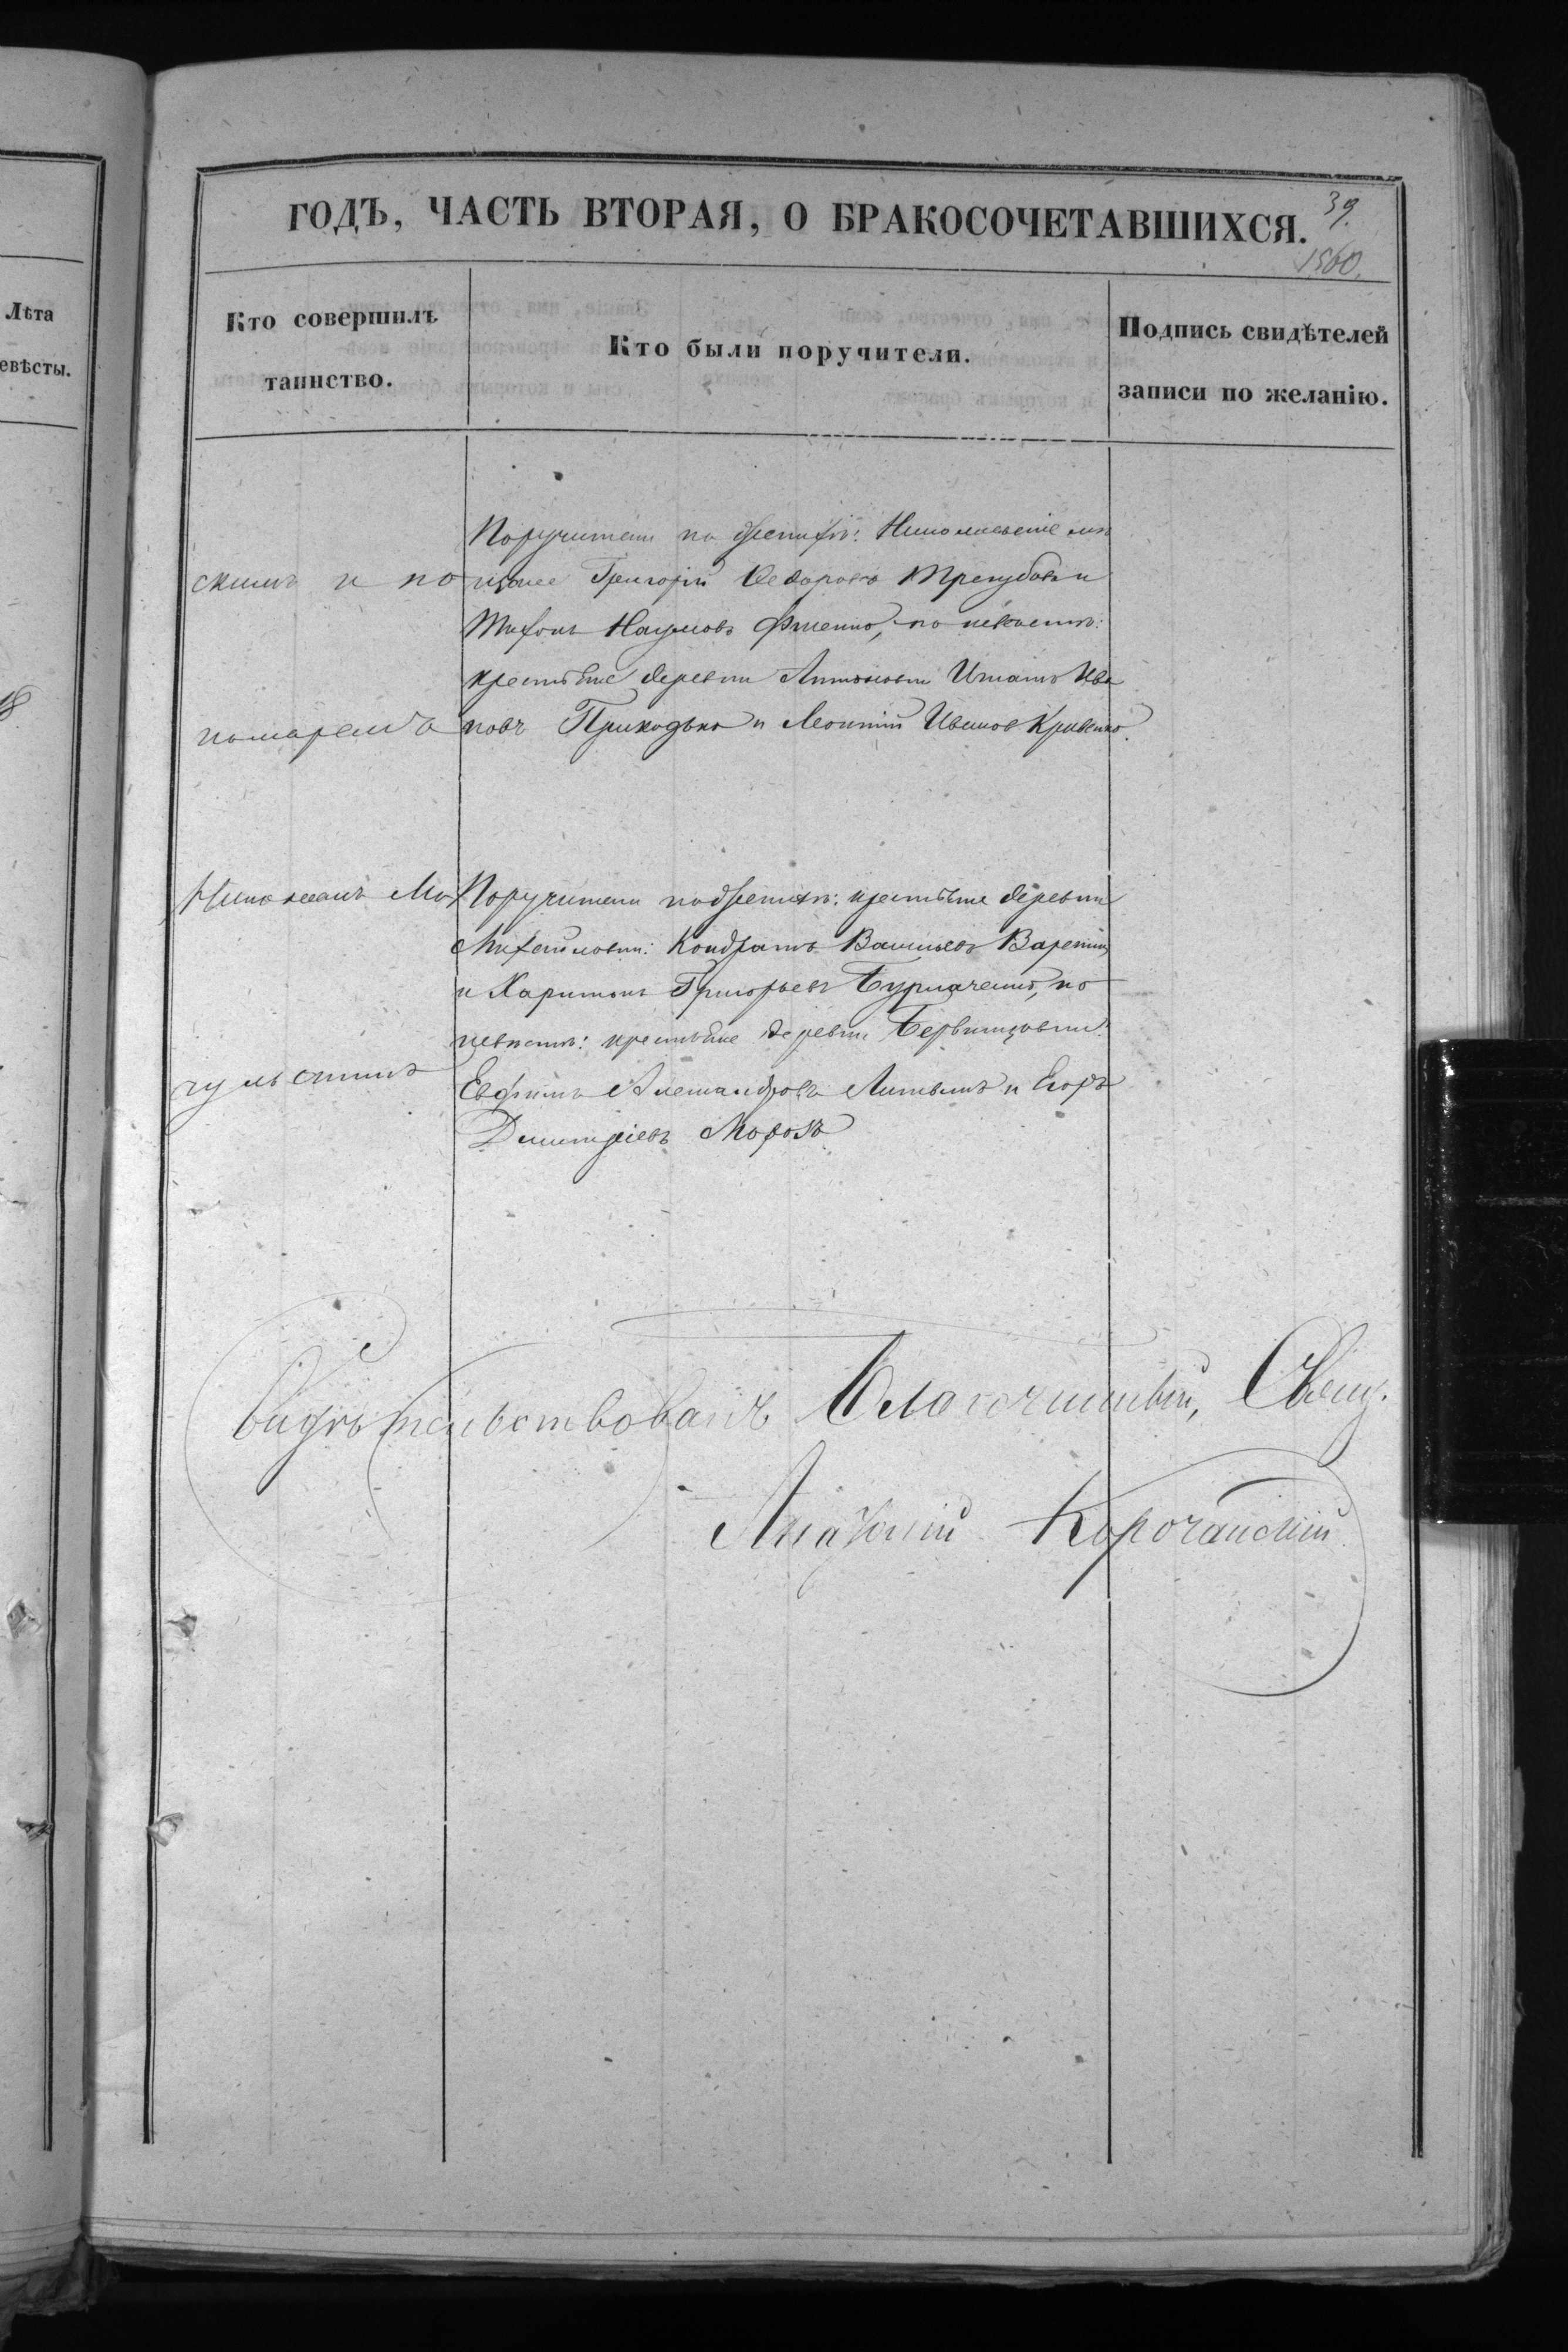 Лѣта
евѣсты.
18
ГОДЪ, ЧАСТЬ ВТОРАЯ, О БРАКОСОЧЕТАВШИХСЯ.
39.
1560.
Кто совершилъ
таинство.
Кто были поручители.
Подпись свидѣтелей
записи по желанію.
Поручители по женихѣ: Николаевскіе мѣ
скимъ и по
щане Григорій Ѳедоровъ Трегубовъ и
Наумовъ по невѣстѣ:
крестьяне деревни Антоновки Игнатъ Ива
номаремъ
новъ Приходько и Леонтій Ивановъ Кривенко.
Николаемъ Ма
Поручители по женихѣ: крестьяне деревни
Михайловки: Кондратъ Васильевъ
и Харитонъ Григорьевъ Бурлаченко, по
невѣстѣ: крестьяне деревни
Евфимъ Александровъ Литвинъ и Егоръ
Димитріевъ Морозъ
Свидѣтельствовалъ Благочинный, Свящ.
Корочанскій